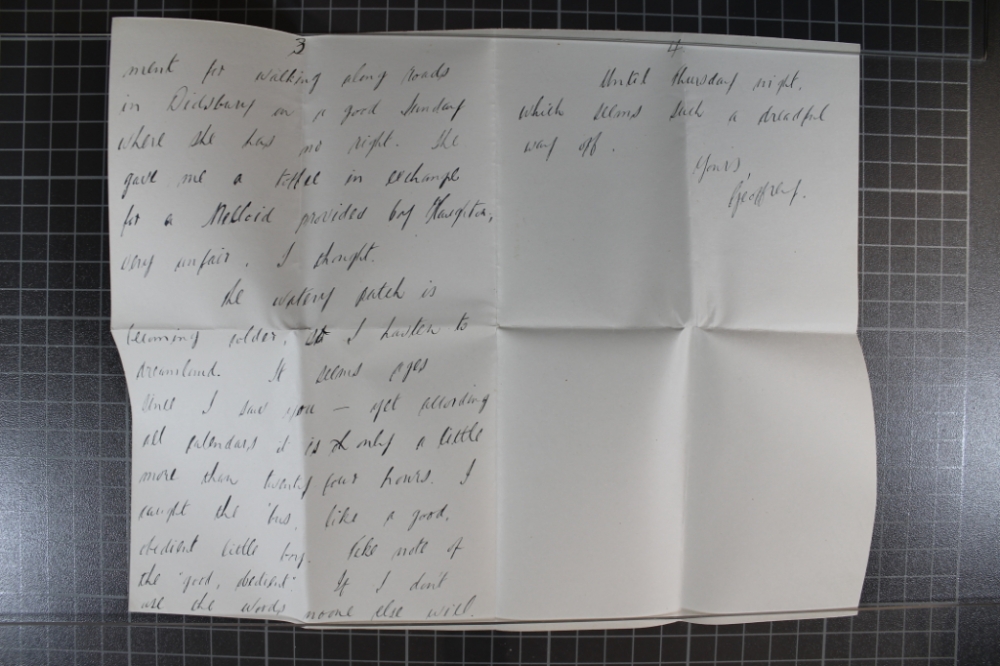 3
ment for walking along roads
in Didsbury on a good Sunday
where she has no right. She
gave me a toffee in exchange
for a Meloid provided by Houghton,
very unfair, I thought.
The watery patch is
becoming colder, so I hasten to
dreamland. It seems ages
since I saw you — yet according
all calendars it is only a little
more than twenty four hours. I
caught the 'bus, like a good,
obedient little boy. Take note of
the "good, obedient" If I don't
use the words noone else will.
4
Until thursday night,
which seems such a dreadful
way off.
Yours,
Geoffrey.